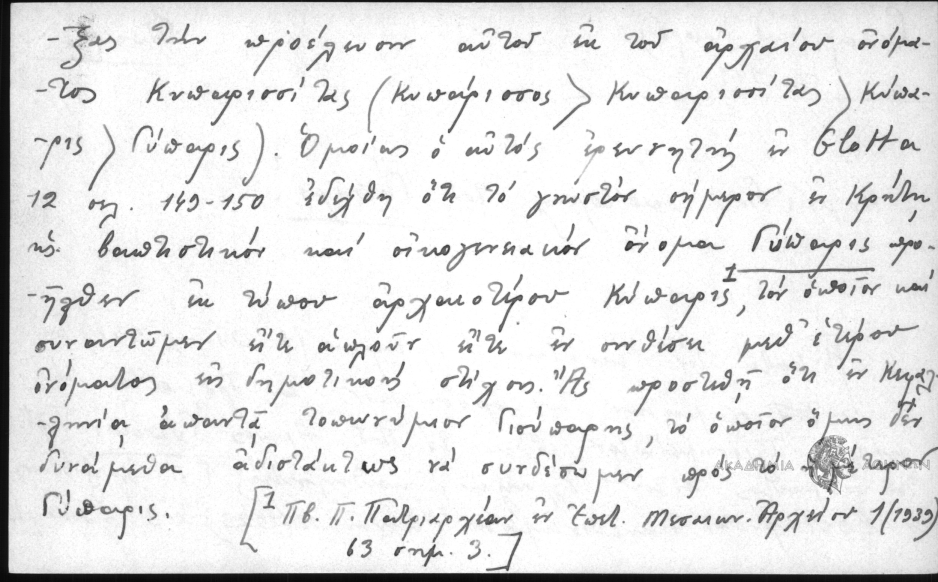 -ξας τὴν προέλευσιν αὐτοῦ ἐκ τοῦ ἀρχαίου ὀνόμα-
-τος Κυπαρισσίτας (Κυπάρισσος > Κυπαρισσίτας > Κύπα-
-ρις > Γύπαρις). Ὁμοίως ὁ αὐτός ἐρευνητής ἐν Glotta
12 σελ. 149-150 ἐδέχθη ὅτι τό γνωστόν σήμερον ἐν Κρήτῃ
ὡς βαπτιστικόν καί οἰκογενειακόν ὄνομα Γύπαρις προ-
-ῆλθεν ἐκ τύπου ἀρχαιοτέρου Κύπαρις 1, τόν ὁποῖον καί
συναντῶμεν εἴτε ἁπλοῦν εἴτε ἐν συνθέσει μεθ' ἑτέρου
ὀνόματος εἰς δημοτικούς στίχους. Ἄς προστεθῇ ὅτι ἐν Κεφαλ-
-ληνίᾳ ἀπαντᾷ τοπωνύμιον Γιούπαρης, τό ὁποῖον ὅμως δέν
δυνάμεθα ἀδιστάκτως νά συνδέσωμεν πρός τό ἡμέτερον
Γύπαρις. [1 Πβ. Π. Πατριαρχέαν ἐν Ἐπετ. Μεσαιων. Ἀρχείου 1 (1939)
63 σημ. 3.]
ΑΚΑΔΗΜΙΑ ΑΘΗΝΩΝ